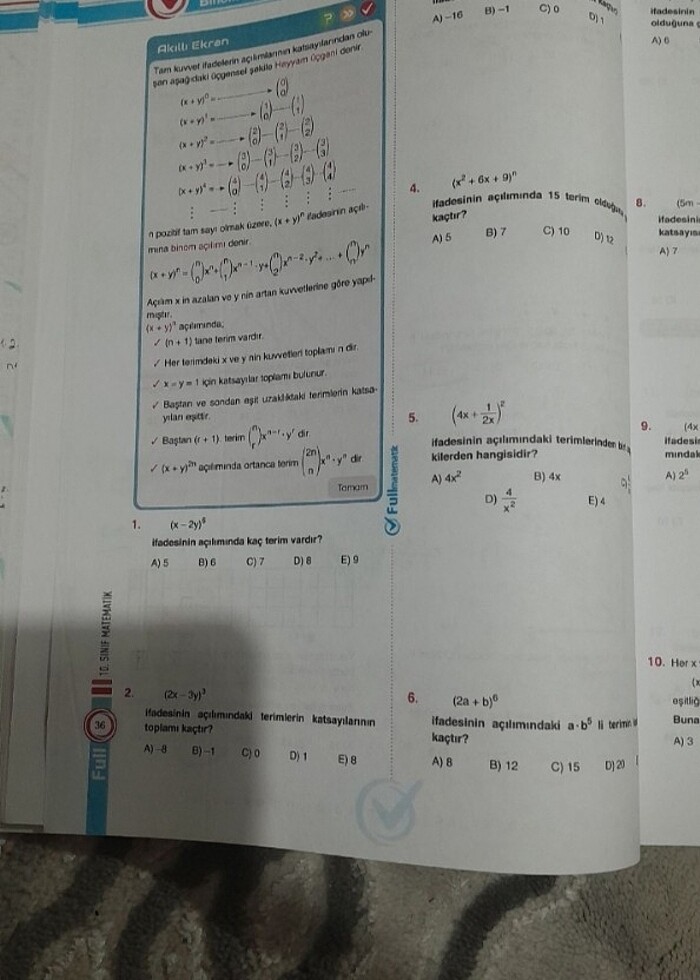 A) -16 B) -1 C) 0 D) 1
ifadesinin
olduğuna
A) 6
Akıllı Ekran
Tam kuvvet ifadelerin açılımlarının katsayılarından olu-
şan aşağıdaki üçgensel şekile Hayyam üçgeni denir.
(x + y)⁰ (0 0)
(x + y)¹ (1 0) (1 1)
(x + y)² (2 0) (2 1) (2 2)
(x + y)³ (3 0) (3 1) (3 2) (3 3)
(x + y)⁴ (4 0) (4 1) (4 2) (4 3) (4 4)
n pozitif tam sayı olmak üzere, (x + y)ⁿ ifadesinin açılı-
mına binom açılımı denir.
(x + y)ⁿ = (n 0)xⁿ + (n 1)xⁿ⁻¹ · y + (n 2)xⁿ⁻² · y² + ... + (n n)yⁿ
Açılım x in azalan ve y nin artan kuvvetlerine göre yapıl-
mıştır.
(x + y)ⁿ açılımında;
✓ (n + 1) tane terim vardır.
✓ Her terimdeki x ve y nin kuvvetleri toplamı n dir.
✓ x = y = 1 için katsayılar toplamı bulunur.
✓ Baştan ve sondan eşit uzaklıktaki terimlerin katsa-
yıları eşittir.
✓ Baştan (r + 1). terim (n r)xⁿ⁻ʳ · yʳ dir
✓ (x + y)²ⁿ açılımında ortanca terim (2n n)xⁿ · yⁿ dir
Tamam
1. (x – 2y)⁶
ifadesinin açılımında kaç terim vardır?
A) 5 B) 6 C) 7 D) 8 E) 9
2. (2x – 3y)³
ifadesinin açılımındaki terimlerin katsayılarının
toplamı kaçtır?
A) -8 B) -1 C) 0 D) 1 E) 8
10. SINIF MATEMATİK
36
Full
Full matematik
4. (x² + 6x + 9)ⁿ
ifadesinin açılımında 15 terim
kaçtır?
A) 5 B) 7 C) 10 D) 12
5. (4x + 1/2x)²
ifadesinin açılımındaki terimlerinden
kilerden hangisidir?
A) 4x² B) 4x
D) 4/x² E) 4
6. (2a + b)⁶
ifadesinin açılımındaki a·b⁵ li
kaçtır?
A) 8 B) 12 C) 15 D) 20
8. (5m -
ifadesini
katsayısı
A) 7
9. (4x
ifadesi
mındak
A) 2⁵
10. Her x
(x
eşitliğ
Buna
A) 3